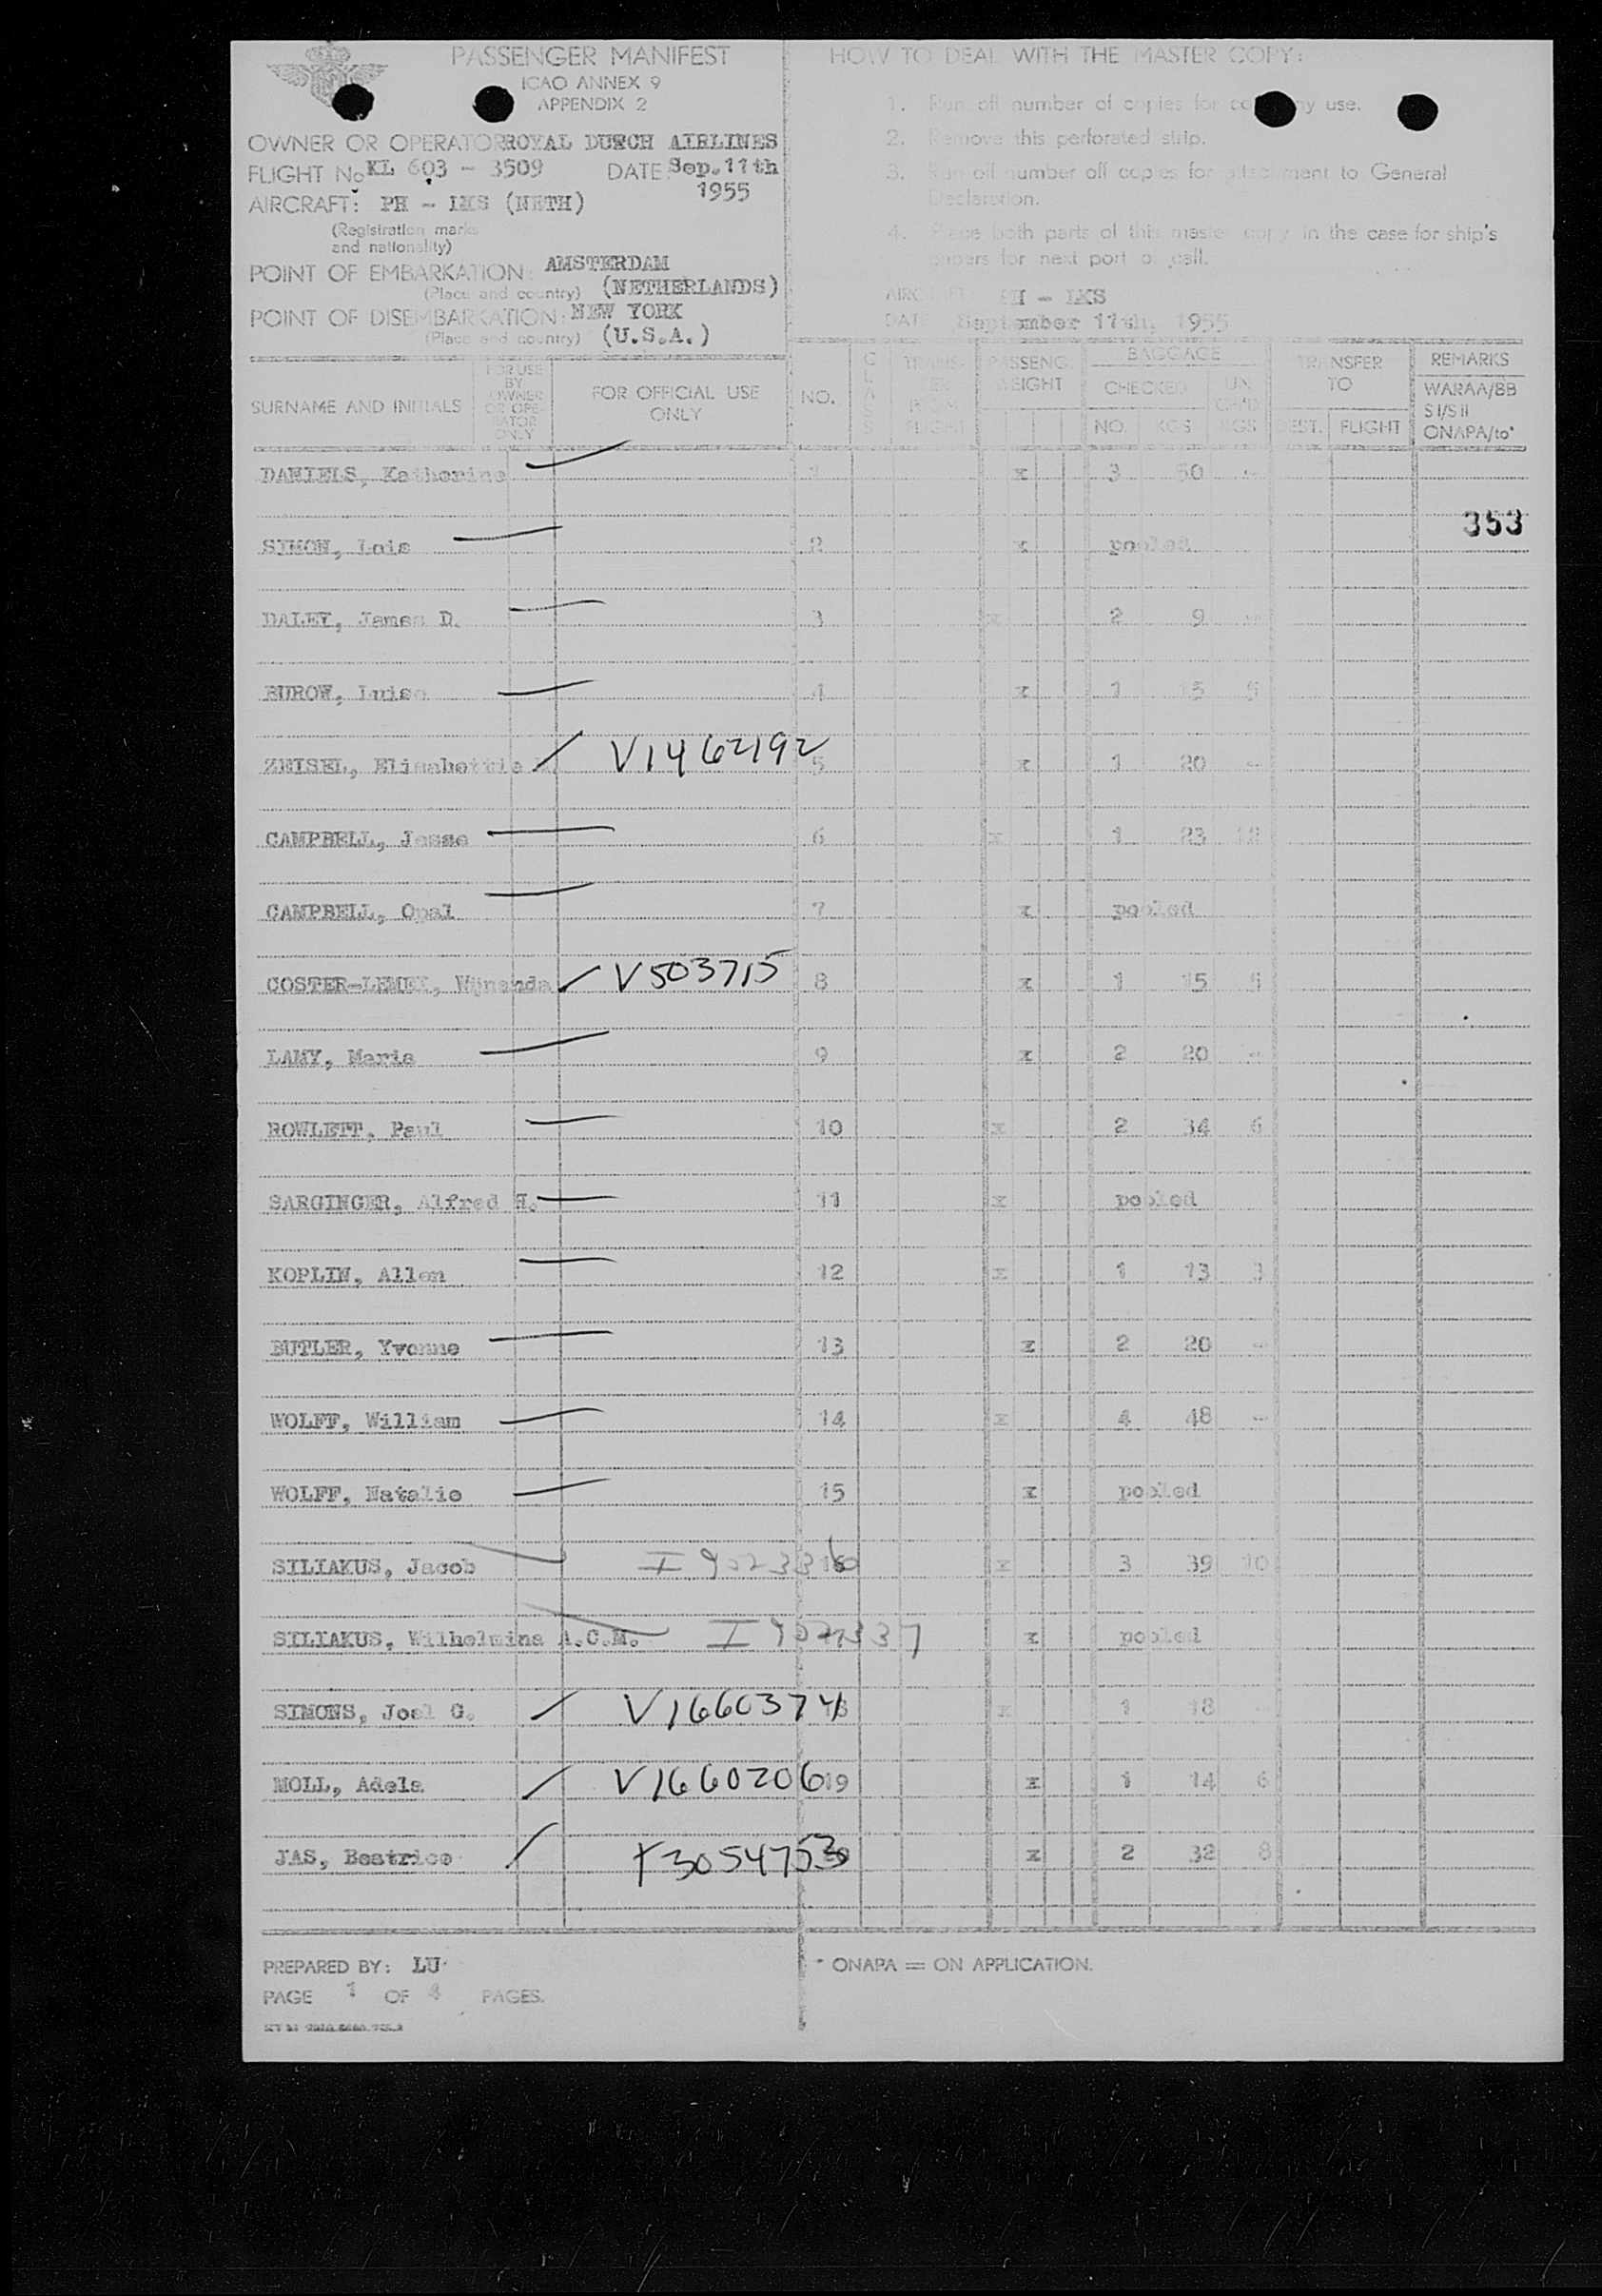 PASSENGER MANIFEST
ICAO ANNEX 9
APPENDIX 2
OWNER OR OPERATOR ROYAL DUTCH AIRLINES
FLIGHT No KL 603 - 3509 DATE Sep. 11th
1955
AIRCRAFT: PH - LKS (NETH)
(Registration marks
and nationality)
POINT OF EMBARKATION: AMSTERDAM
(Place and country) (NETHERLANDS)
POINT OF DISEMBARKATION: NEW YORK
(Place and country) (U.S.A.)
HOW TO DEAL WITH THE MASTER COPY:
1. Run off number of copies for company use.
2. Remove this perforated strip.
3. Run off number off copies for attachment to General
Declaration.
4. Place both parts of this master copy in the case for ship's
papers for next port of call.
AIRCRAFT PH - LKS
DATE September 11th, 1955
SURNAME AND INITIALS
FOR USE
BY
OWNER
OR OPE-
RATOR
ONLY
FOR OFFICIAL USE
ONLY
NO.
CLASS
TRANS-
FER
FROM
FLIGHT
PASSENG.
WEIGHT
BAGGAGE
CHECKED
NO. KGS
UN
CH'D
KGS
TRANSFER
TO
DEST. FLIGHT
REMARKS
WARAA/BB
SI/SII
ONAPA/to*
DANIELS, Katherine x 3 60 -
353
SIMON, Lois 2 x pooled
DALEY, James D. 3 x 2 9 -
BUROW, Luise 4 x 1 15 5
ZEISEL, Elisabethle V1462192 5 x 1 20 -
CAMPBELL, Jesse 6 x 1 23 12
CAMPBELL, Opal 7 x pooled
COSTER-LEMEI, Wijnanda V503715 8 x 1 15 5
LAMY, Maria 9 x 2 20 -
ROWLETT, Paul 10 x 2 34 6
SARGINGER, Alfred H. 11 x pooled
KOPLIN, Allen 12 x 1 13 3
BUTLER, Yvonne 13 x 2 20 -
WOLFF, William 14 x 4 48 -
WOLFF, Natalie 15 x pooled
SILIAKUS, Jacob I 902336 16 x 3 39 10
SILIAKUS, Wilhelmina A.C.M. I 902337 x pooled
SIMONS, Joel G. V1660374 18 x 1 18
MOLL, Adele V1660206 19 x 1 14 6
JAS, Beatrice T3054753 x 2 32 8
PREPARED BY: LU
PAGE 1 OF 4 PAGES.
* ONAPA = ON APPLICATION.